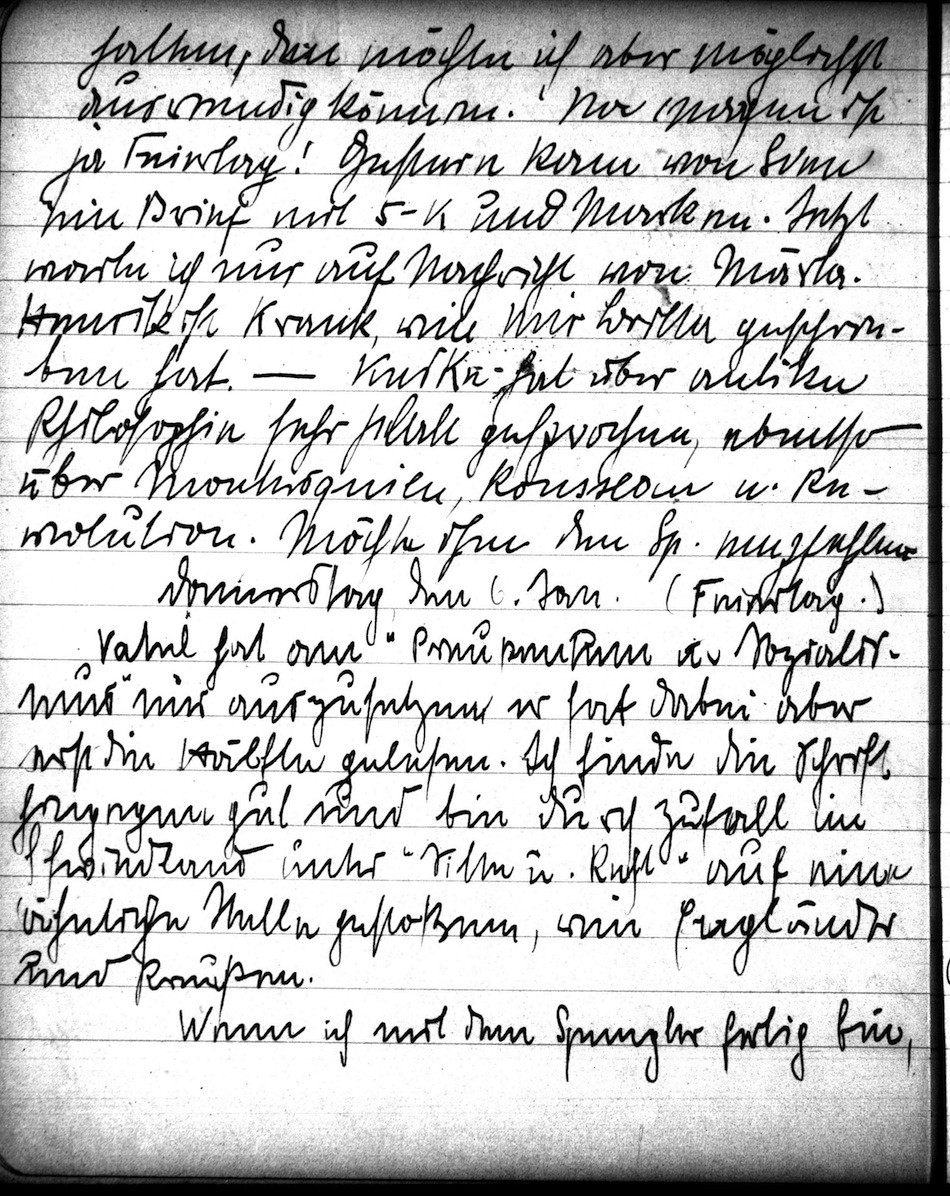 halten, den möchte ich aber möglichst
auswendig können. Na morgen ist
ja Feiertag! Gestern kam von
ein Brief mit 5 K und Marken. Jetzt
warte ich nur auf Nachricht von Märta.
Henrik ist krank, wie mir geschrie-
ben hat. — hat über antike
Philosophie sehr gesprochen, ebenso
über Montesquieu, Rousseau u. Re-
volution. Möchte ihm den Sp. empfehlen
Donnerstag den 6. Jan. (Feiertag.)
Vatel hat am "Preussentum u. Sozialis-
mus" nur auszusetzen, er hat dabei aber
erst die Hälfte gelesen. Ich finde die Schrift
hingegen gut und bin durch Zufall im
unter "Sitte u. Recht" auf eine
ähnliche Stelle gestoßen, wie Engländer
und Preußen.
Wenn ich mit dem Spengler fertig bin,